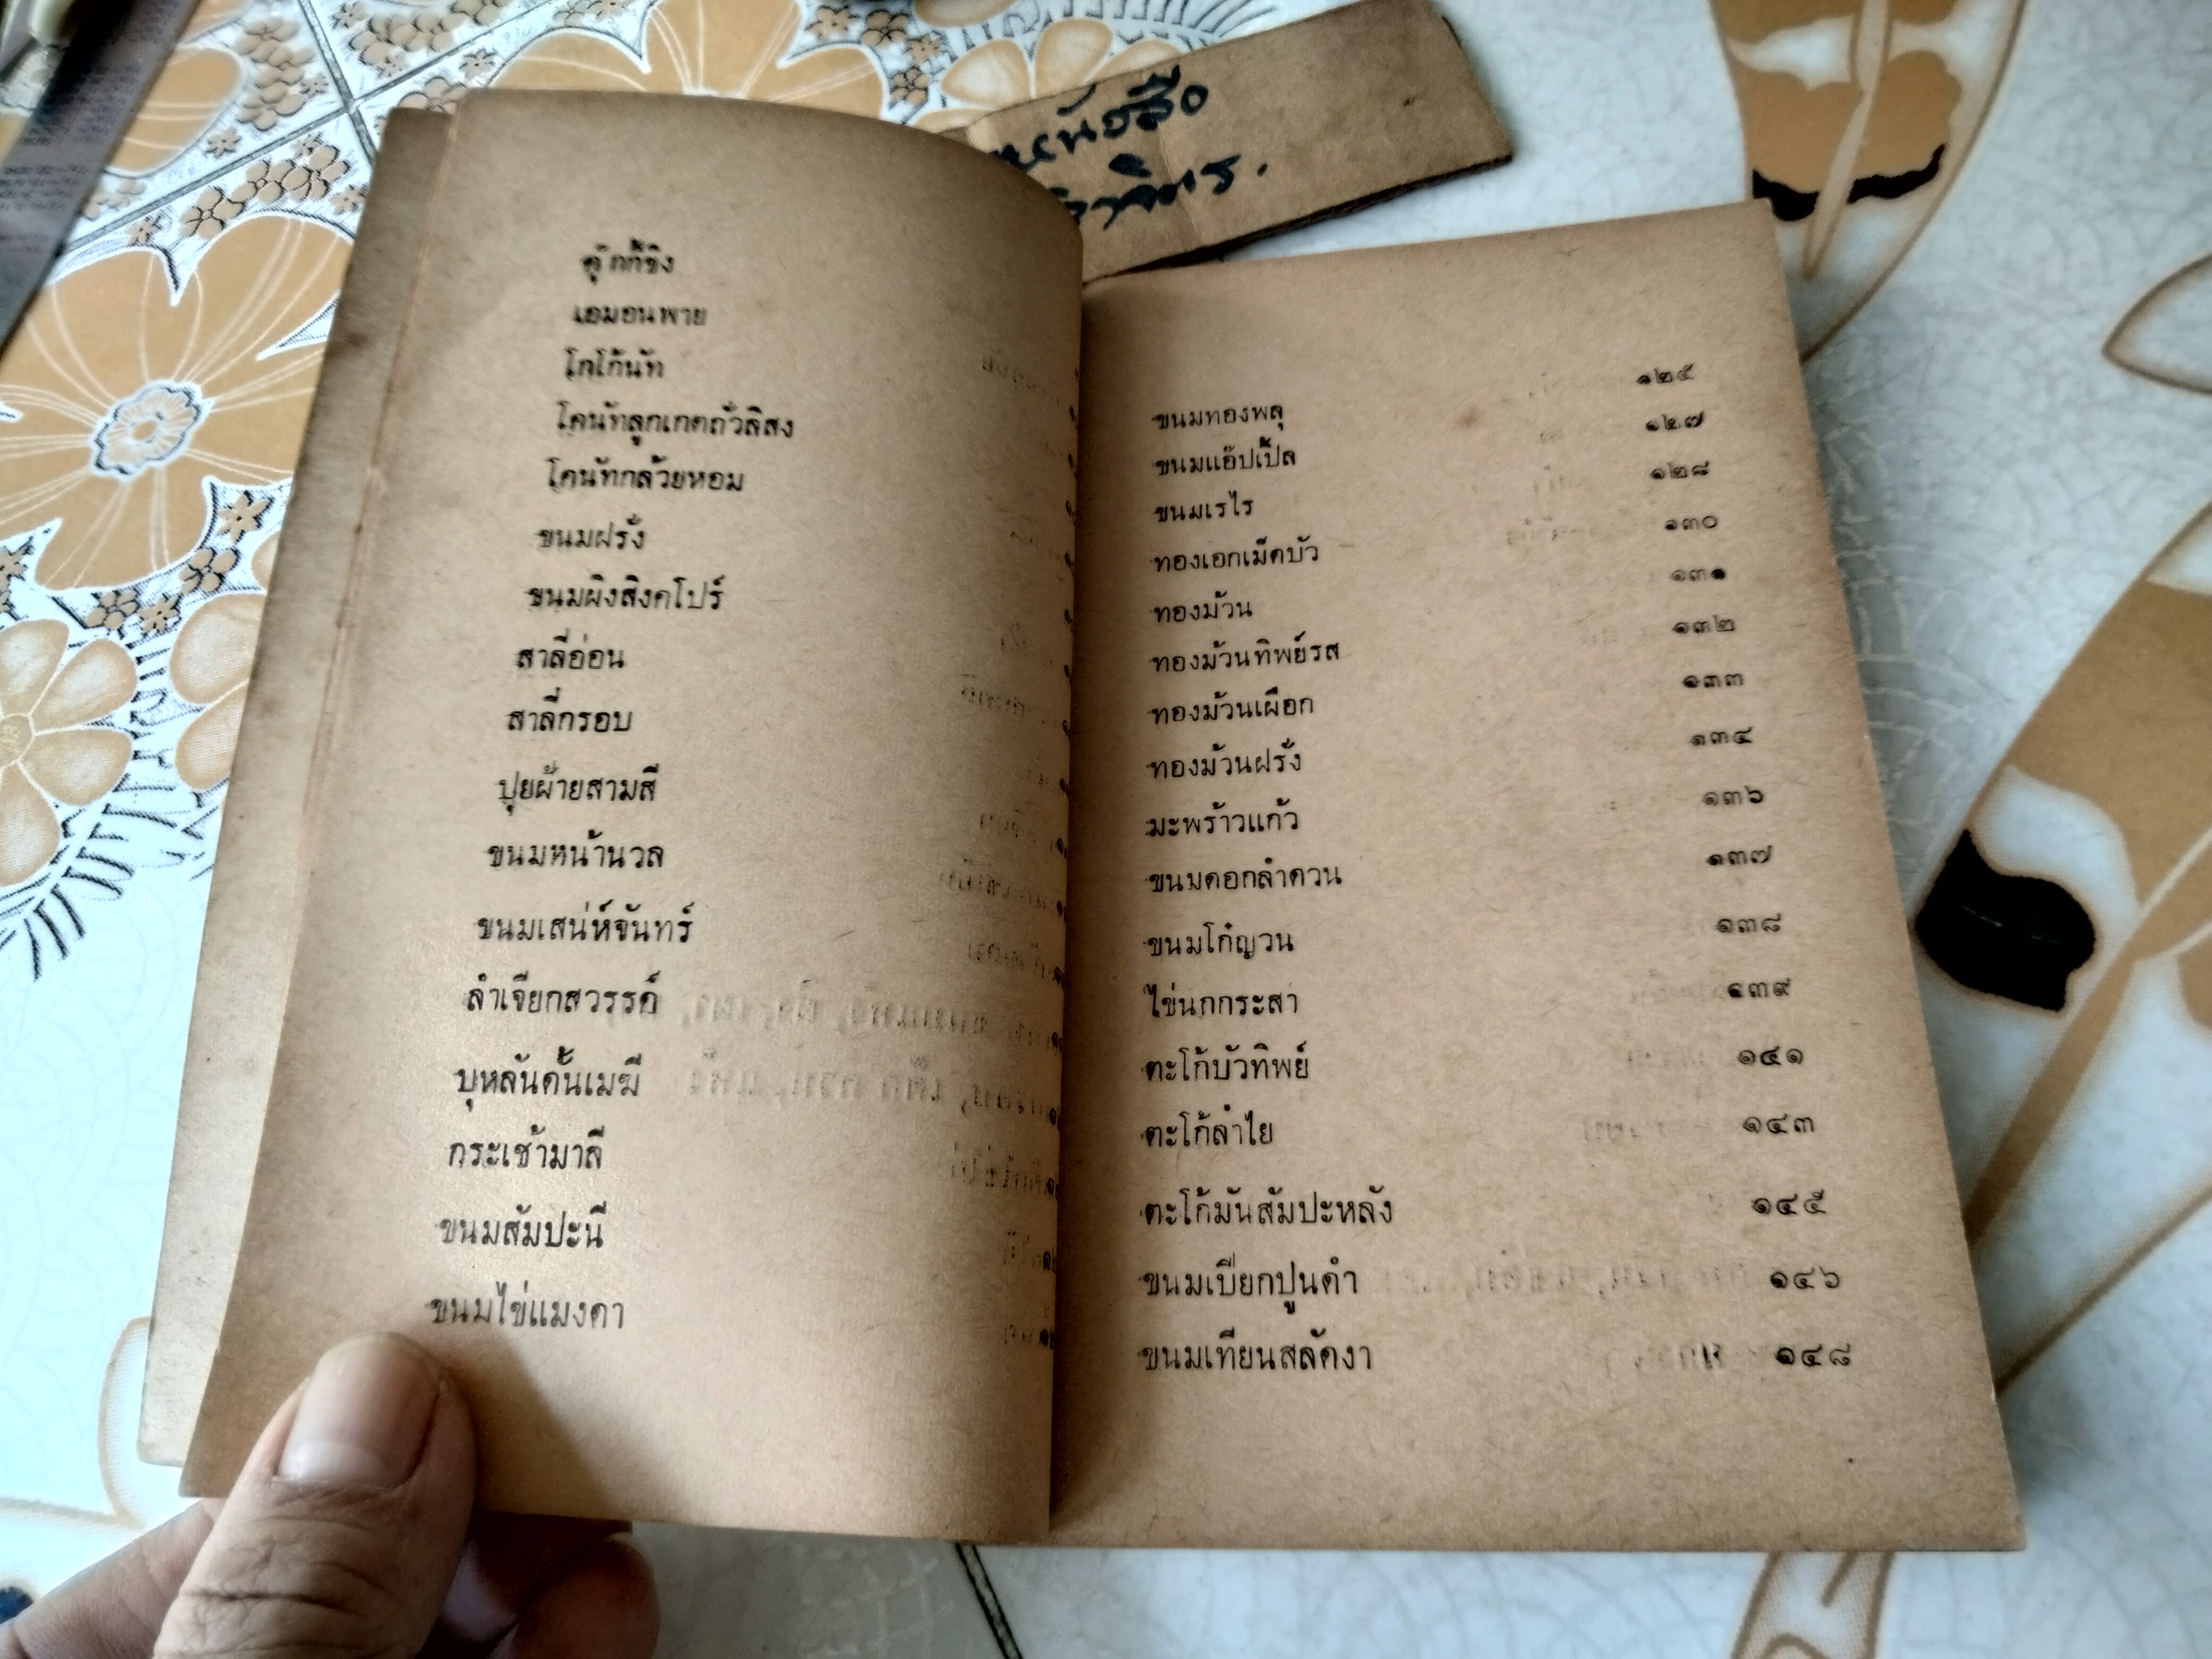 คุ๊กกี้ขิง
เอมอนพาย
โกโก้นัท
โดนัทลูกเกดถั่วลิสง
โดนัทกล้วยหอม
ขนมฝรั่ง
ขนมผิงสิงคโปร์
สาลี่อ่อน
สาลี่กรอบ
ปุยฝ้ายสามสี
ขนมหน้านวล
ขนมเสน่ห์จันทร์
ลำเจียกสวรรค์
บุหลันดั้นเมฆี
กระเช้ามาลี
ขนมสัมปะนี
ขนมไข่แมงดา
ขนมทองพลุ ๑๒๕
ขนมแอ๊ปเปิ้ล ๑๒๗
ขนมเรไร ๑๒๘
ทองเอกเม็ดบัว ๑๓๐
ทองม้วน ๑๓๑
ทองม้วนทิพย์รส ๑๓๒
ทองม้วนเผือก ๑๓๓
ทองม้วนฝรั่ง ๑๓๔
มะพร้าวแก้ว ๑๓๖
ขนมดอกลำดวน ๑๓๗
ขนมโก๋ญวน ๑๓๘
ไข่นกกระสา ๑๓๙
ตะโก้บัวทิพย์ ๑๔๑
ตะโก้ลำไย ๑๔๓
ตะโก้มันสัมปะหลัง ๑๔๕
ขนมเปียกปูนดำ ๑๔๖
ขนมเทียนสลัดงา ๑๔๘